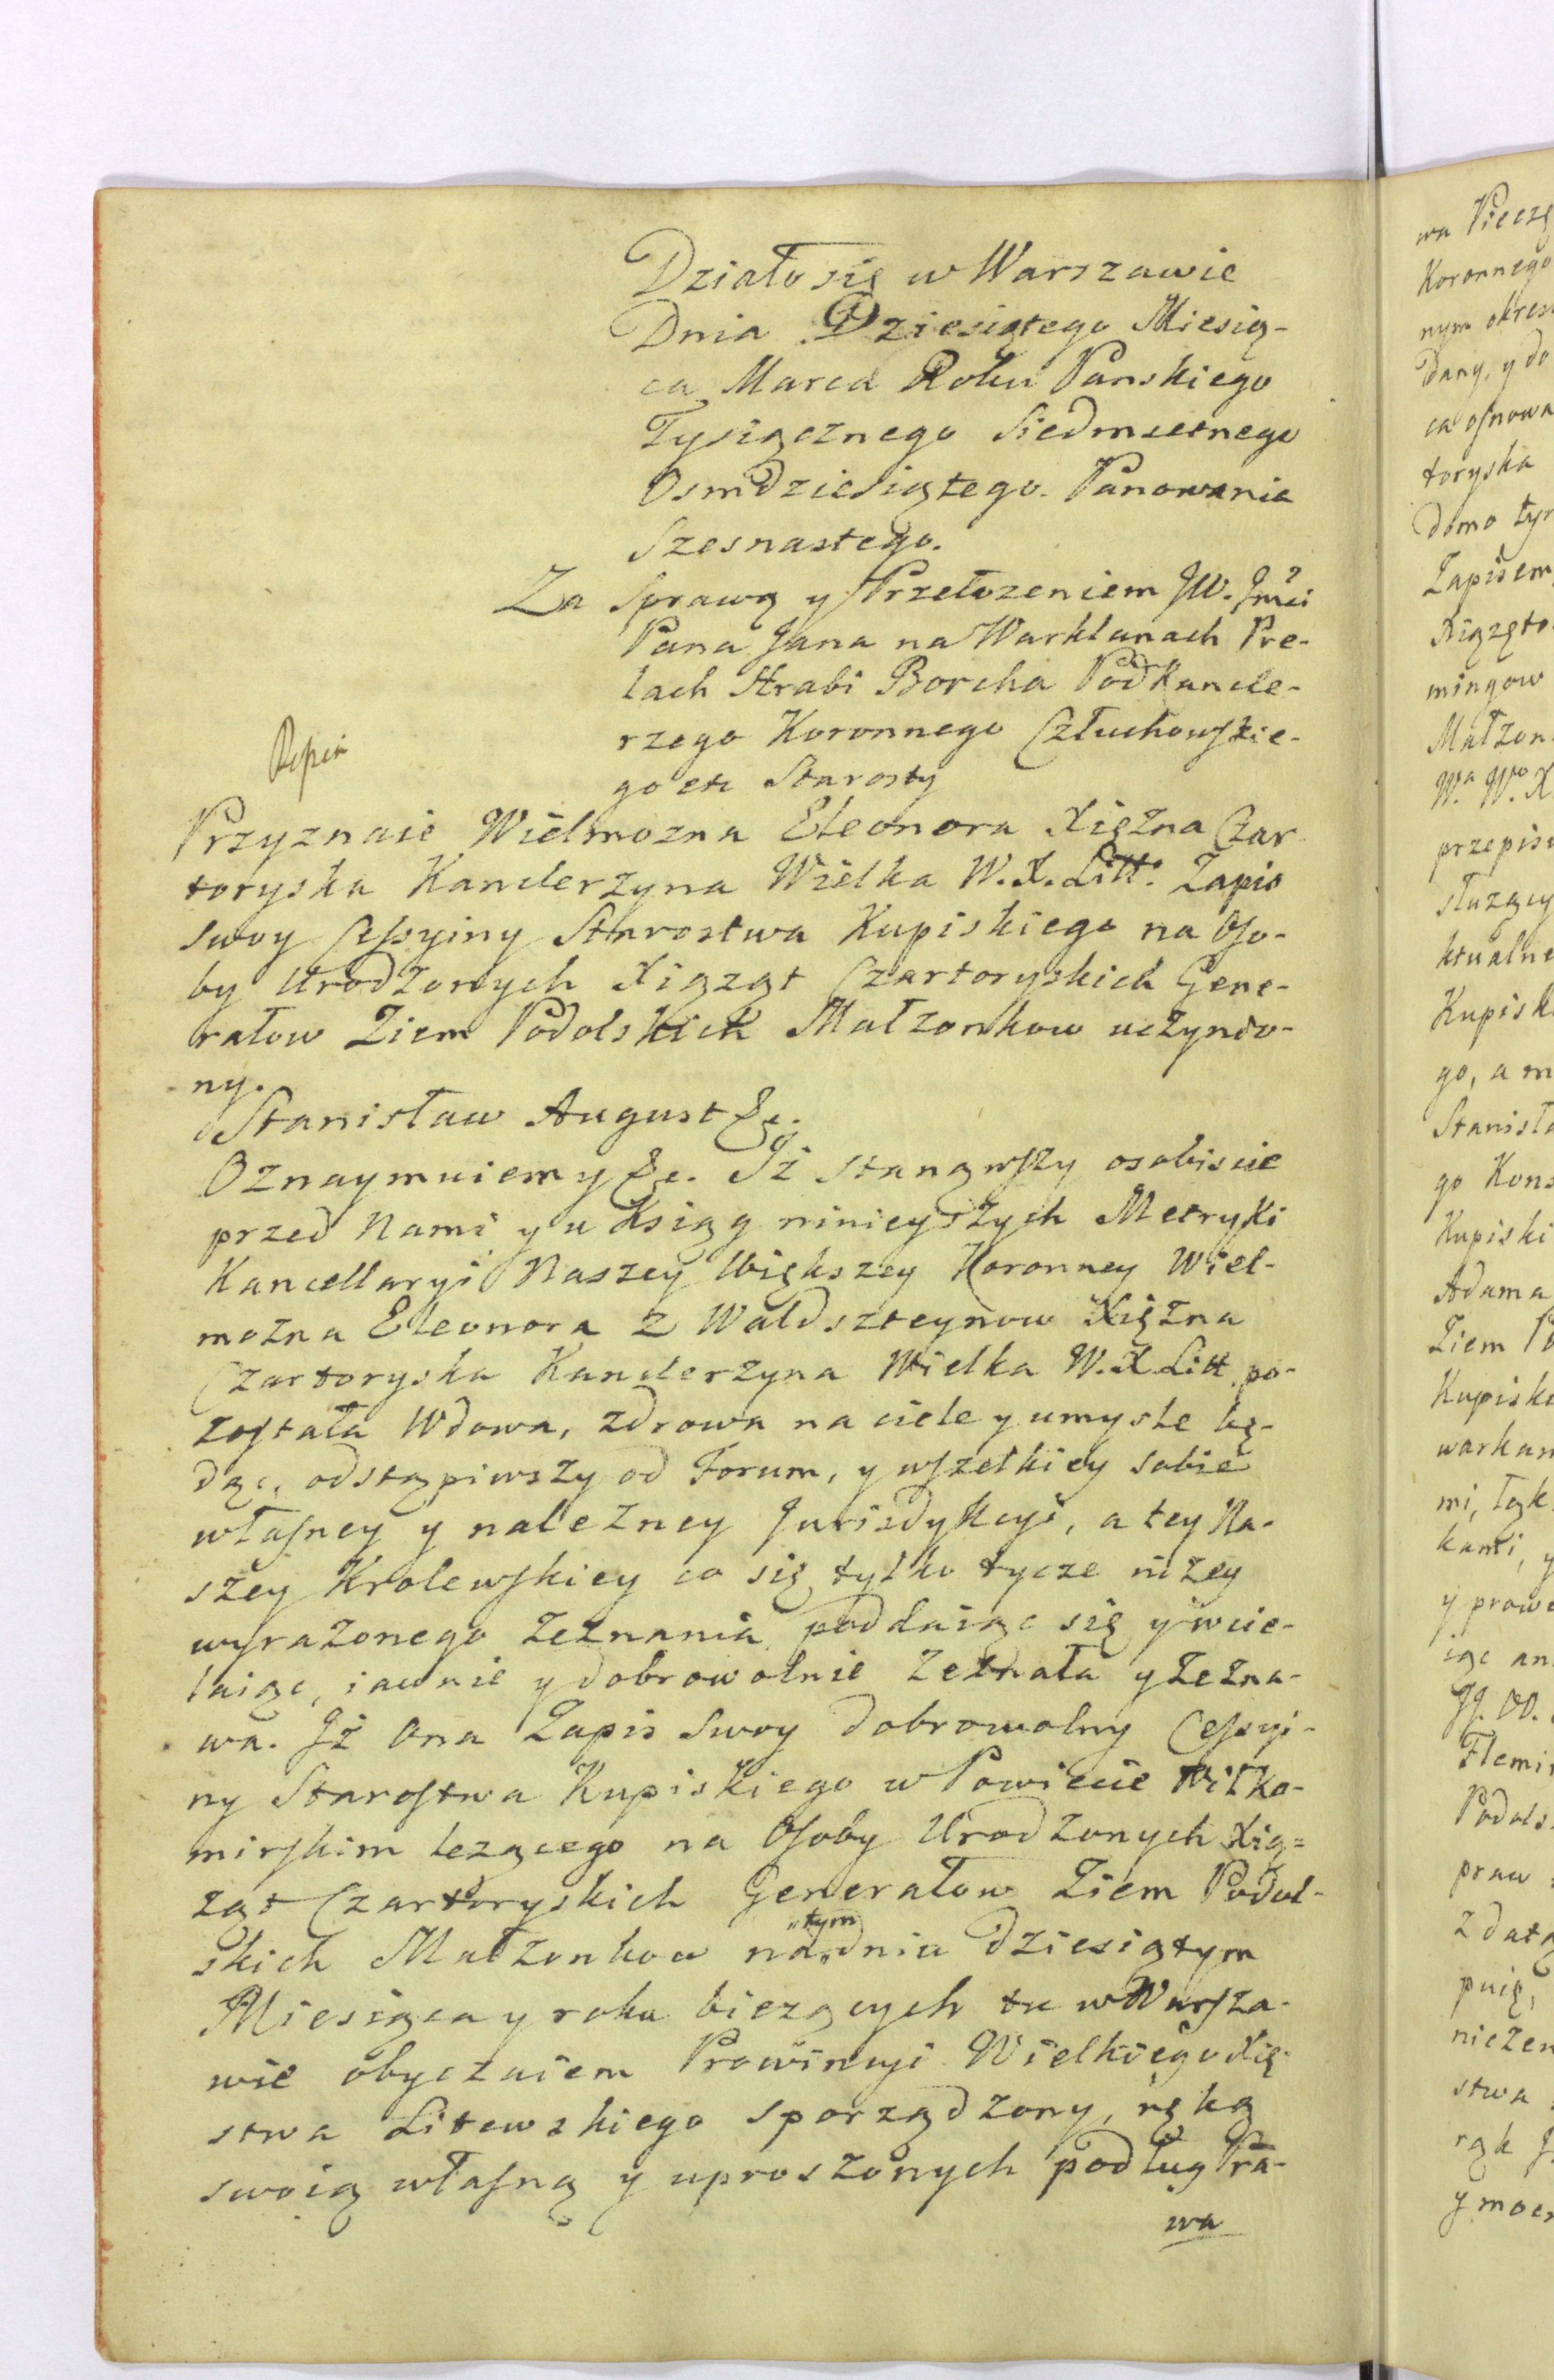 Działo się w Warszawie
Dnia Dziesiątego Miesią-
ca Marca Roku Panskiego
Tysiącznego Siedmsetnego
Osmdziesiątego. Panowania
Szesnastego.
Za Sprawą y Przełozeniem JW. Jmći
Pana Jana na Warklanach Pre-
lach Hrabi Borcha Podkancle-
rzego Koronnego Człuchowskie-
go etc Starosty
Przyznaie Wielmozna Eleonora Xięzna Czar
toryska Kanclerzyna Wielka W. X. Litt: Zapis
swoy Cessyiny Starostwa Kupiskiego na Oso-
by Urodzonych Xiąząt Czartoryskich Gene-
rałow Ziem Podolskich Małzonkow uczynio-
ny.
Stanisław August &c.
Oznaymuiemy &c. Iż stanąwszy osobiscie
przed Nami y u Ksiąg ninieyszych Metryki
Kancellaryi Naszey Większey Koronney Wiel-
mozna Eleonora z Waldszteynow Xięzna
Czartoryska Kanclerzyna Wielka W. X. Litt. po-
została Wdowa, zdrowa na ciele y umysle bę-
dąc, odstąpiwszy od Forum, y wszelkiey sobie
własney y nalezney Jurisdykcyi, a tey Na-
szey Krolewskiey co się tylko tycze nizey
wyrazonego zeznania poddaiąc się y wcie-
laiąc, iawnie y dobrowolnie zeznała y zezna-
wa. Iż Ona Zapis swoy dobrowolny Cessyi-
ny Starostwa Kupiskiego w Powiecie Wiłko-
mirskim lezącego na Osoby Urodzonych Xią=
ząt Czartoryskich Generałow Ziem Podol-
skich Małzonkow na tym dniu dziesiątym
Miesiąca y roku biezących tu w Warsza-
wie obyczaiem Prowincyi Wielkiego Xię-
stwa Litewskiego sporządzony, ręką
swoią własną y uproszonych podług Pra-
wa
wa Pieczę
Koronnego
nym okres
dany, y do
ca osnowa
toryska
domo tym
Zapisem
Xiązęto
mingow
Małzon
W.a W.o X
przepisu
słuzący
ktualne
Kupisk
go, a m
Stanisła
go Kons
Kupiski
Adama
Ziem Po
Kupisk
warkam
mi, łąk
kami, y
y prawe
iąc an
JJ. OO.
Flemi
Podols
praw
z datą
puię,
niczen
stwa
rąk J
y moc